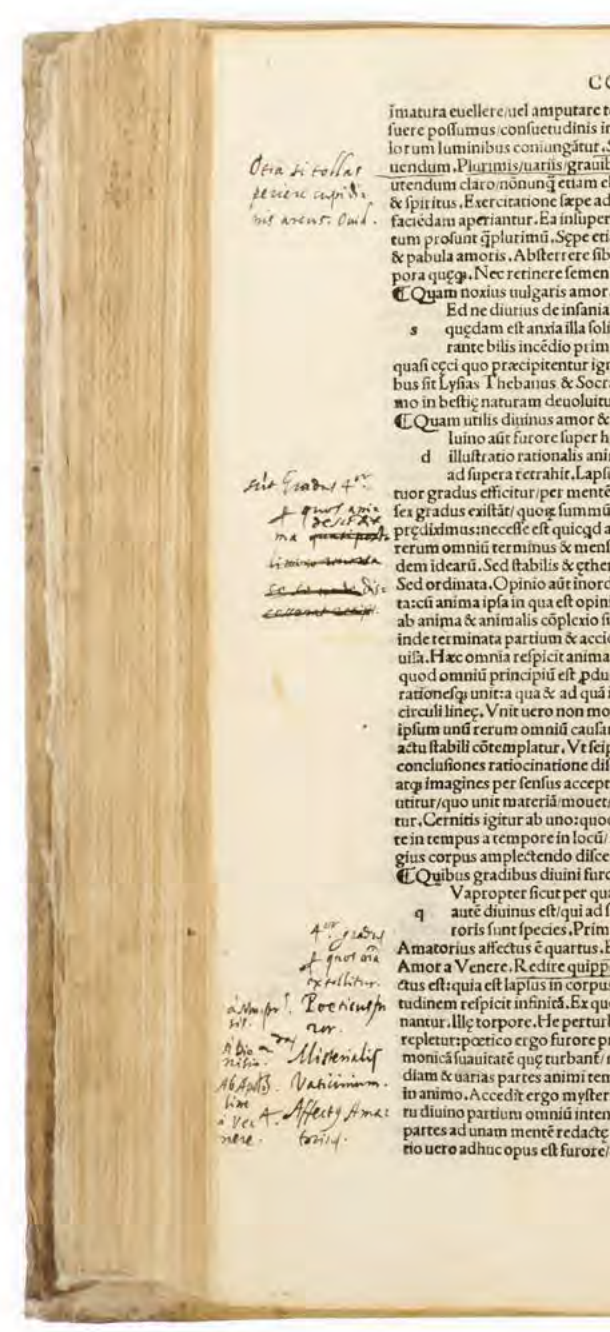 CO
Otia si tollas
periere cupidi-
nis arcus. Ouid.
īmatura euellere/uel amputare t
fuere poſſumus/conſuetudinis i
lorum luminibus coniungātur. S
uendum. Plurimis/uariis/grauib
utendum claro/nōnunq̄ etiam
& ſpiritus. Exercitatione ſæpe ad
faciēdam aperiantur. Ea inſuper
tum proſunt q̄plurimū. Sępe eti
& pabula amoris. Abſterrere ſib
pora quęq;. Nec retinere ſemen
¶ Quam noxius uulgaris amor.
Ed ne diutius de inſania
s quędam eſt anxia illa ſoli
rante bilis incēdio prim
quaſi cęci quo præcipitentur ig
bus ſit Lyſias Thebanus & Socr
mo in beſtię naturam deuoluitu
¶ Quam utilis diuinus amor &
luino aūt furore ſuper h
d illuſtratio rationalis ani
ad ſupera retrahit. Lapſ
sūt Gradus 4or
ꝑ quos
descēdit
ma
tuor gradus efficitur/per mentē
ſex gradus exiſtāt/quoꝝ ſummū
prędiximus: neceſſe eſt quicqd a
rerum omniū terminus & menſ
dem idearū. Sed ſtabilis & ęther
Sed ordinata. Opinio aūt inord
ta: cū anima ipſa in qua eſt opin
ab anima & animalis cōplexio ſ
inde terminata partium & acci
uiſa. Hæc omnia reſpicit anima
quod omniū principiū eſt ꝓdu
rationeſq; unit: a qua & ad quā
circuli lineę. Vnit uero non mo
ipſum unū rerum omniū cauſa
actu ſtabili cōtemplatur. Vt ſeip
concluſiones ratiocinatione di
atq; imagines per ſenſus accept
utitur/quo unit materiā/mouet
tur. Cernitis igitur ab uno: quo
te in tempus a tempore in locū/
gius corpus amplectendo diſce
¶ Quibus gradibus diuini furo
Vapropter ſicut per qua
q autē diuinus eſt/qui ad ſ
roris ſunt ſpecies. Prim
4or gradus
ꝑ quos
extollitur.
Poeticus fu
ror.
Misterialis
Vaticinium.
Affectꝰ Ama
toriꝰ.
à Ve
nere.
Amatorius affectus ē quartus. E
Amor a Venere. Redire quipp
ctus eſt: quia eſt lapſus in corpus
tudinem reſpicit infinitā. Ex qu
nantur. Illę torpore. He pertur
repletur: poetico ergo furore p
monicā ſuauitatē quę turbant/
diam & uarias partes animi tem
in animo. Accedit ergo myſter
tu diuino partium omniū inten
partes ad unam mentē redactę
tio uero adhuc opus eſt furore/